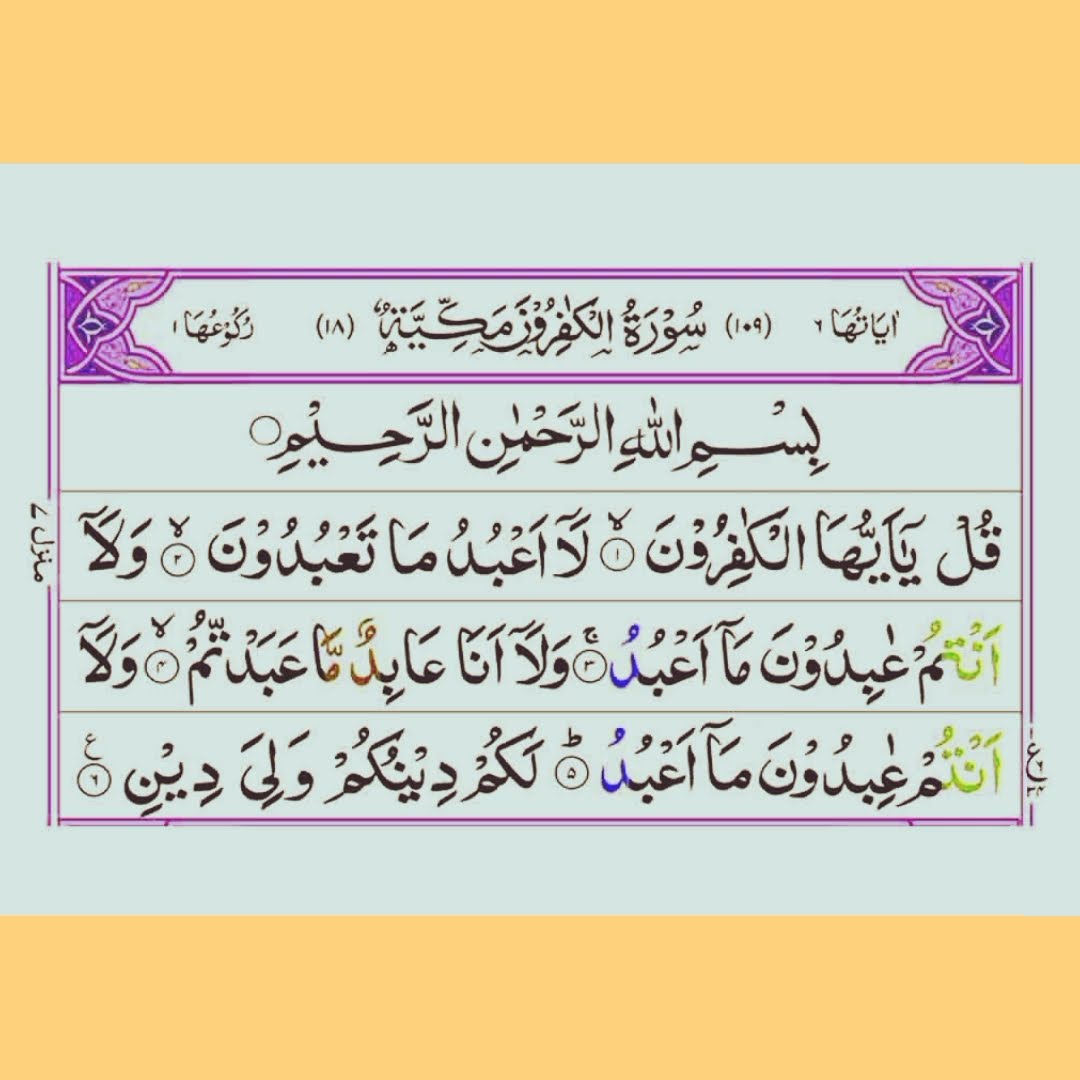 اٰيَاتُهَا ٦ (١٠٩) سُوْرَةُ الْكٰفِرُوْنَ مَكِّيَّةٌ (١٨) رُكُوْعُهَا ١
بِسْمِ اللّٰهِ الرَّحْمٰنِ الرَّحِيْمِ
قُلْ يٰٓاَيُّهَا الْكٰفِرُوْنَ ۙ﴿١﴾ لَآ اَعْبُدُ مَا تَعْبُدُوْنَ ۙ﴿٢﴾ وَلَآ
اَنْتُمْ عٰبِدُوْنَ مَآ اَعْبُدُ ۚ﴿٣﴾ وَلَآ اَنَا عَابِدٌ مَّا عَبَدْتُّمْ ۙ﴿٤﴾ وَلَآ
اَنْتُمْ عٰبِدُوْنَ مَآ اَعْبُدُ ؕ﴿٥﴾ لَكُمْ دِيْنُكُمْ وَلِيَ دِيْنِ ﴿٦﴾ ع
منزل ٧